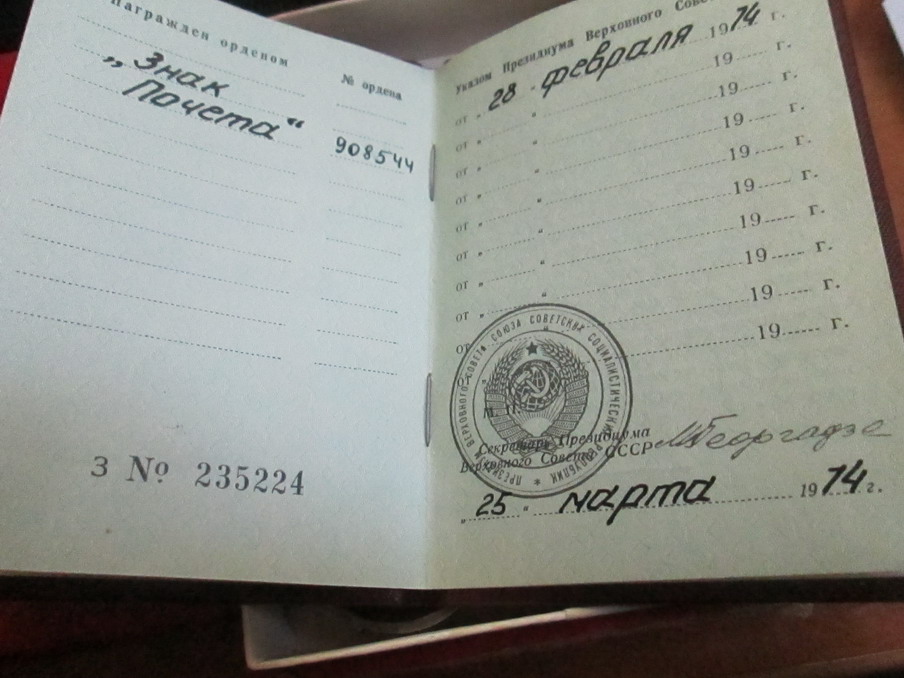 Награжден орденом
№ ордена
„Знак
Почета“
908544
З № 235224
Указом Президиума Верховного
от „ 28 “ февраля 1974 г.
от „ “ 19 г.
от „ “ 19 г.
от „ “ 19 г.
от „ “ 19 г.
от „ “ 19 г.
от „ “ 19 г.
от „ “ 19 г.
от „ “ 19 г.
от „ “ 19 г.
ПРЕЗИДИУМ ВЕРХОВНОГО СОВЕТА СОЮЗА СОВЕТСКИХ СОЦИАЛИСТИЧЕСКИХ РЕСПУБЛИК
М. П.
Секретарь Президиума
Верховного Совета СССР М Георгадзе
„ 25 “ марта 1974 г.